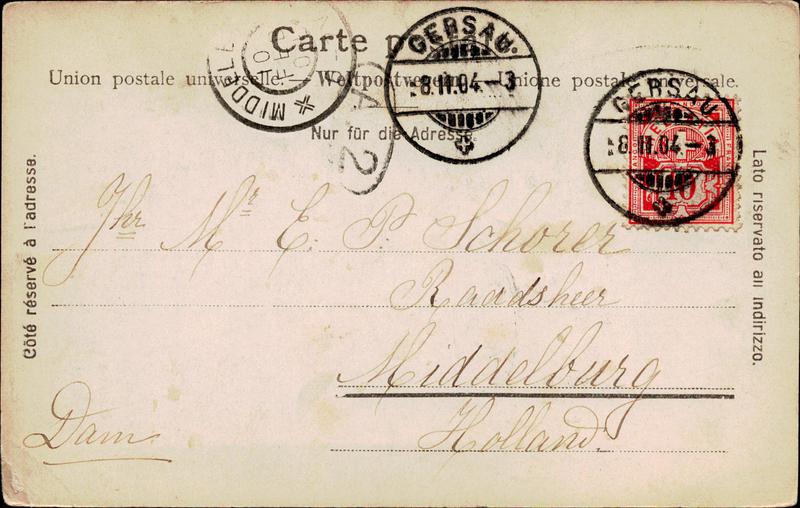 Carte
Union postale universelle. — Weltpostverein. — Unione postale universale.
Nur für die Adresse.
GERSAU.
8.II.04.-3
GERSAU.
8.II.04.-3
MIDDEL
2
10
Côté réservé à l'adresse.
Lato riservato all indirizzo.
Jhr Mr E. P. Schorer
Raadsheer
Middelburg
Dam
Holland.